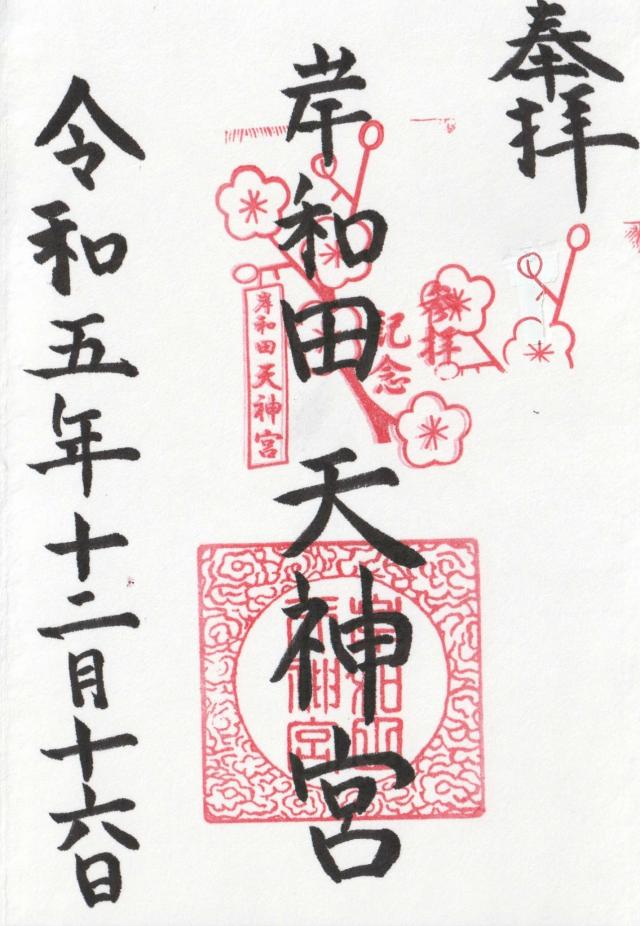 奉拝
参拝
記念
岸和田天神宮
岸和田天神宮
令和五年十二月十六日